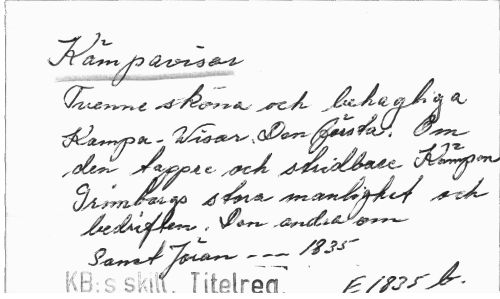 Kämpavisor
Tvenne sköna och behagliga
Kämpa-Visor. Den första. Om
den tappre och stridbare Kämpen
Grimborgs stora manlighet och
bedriften. Den andra om
Sanct Jöran --- 1835
KB:s skill. Titelreg. E 1835 b.